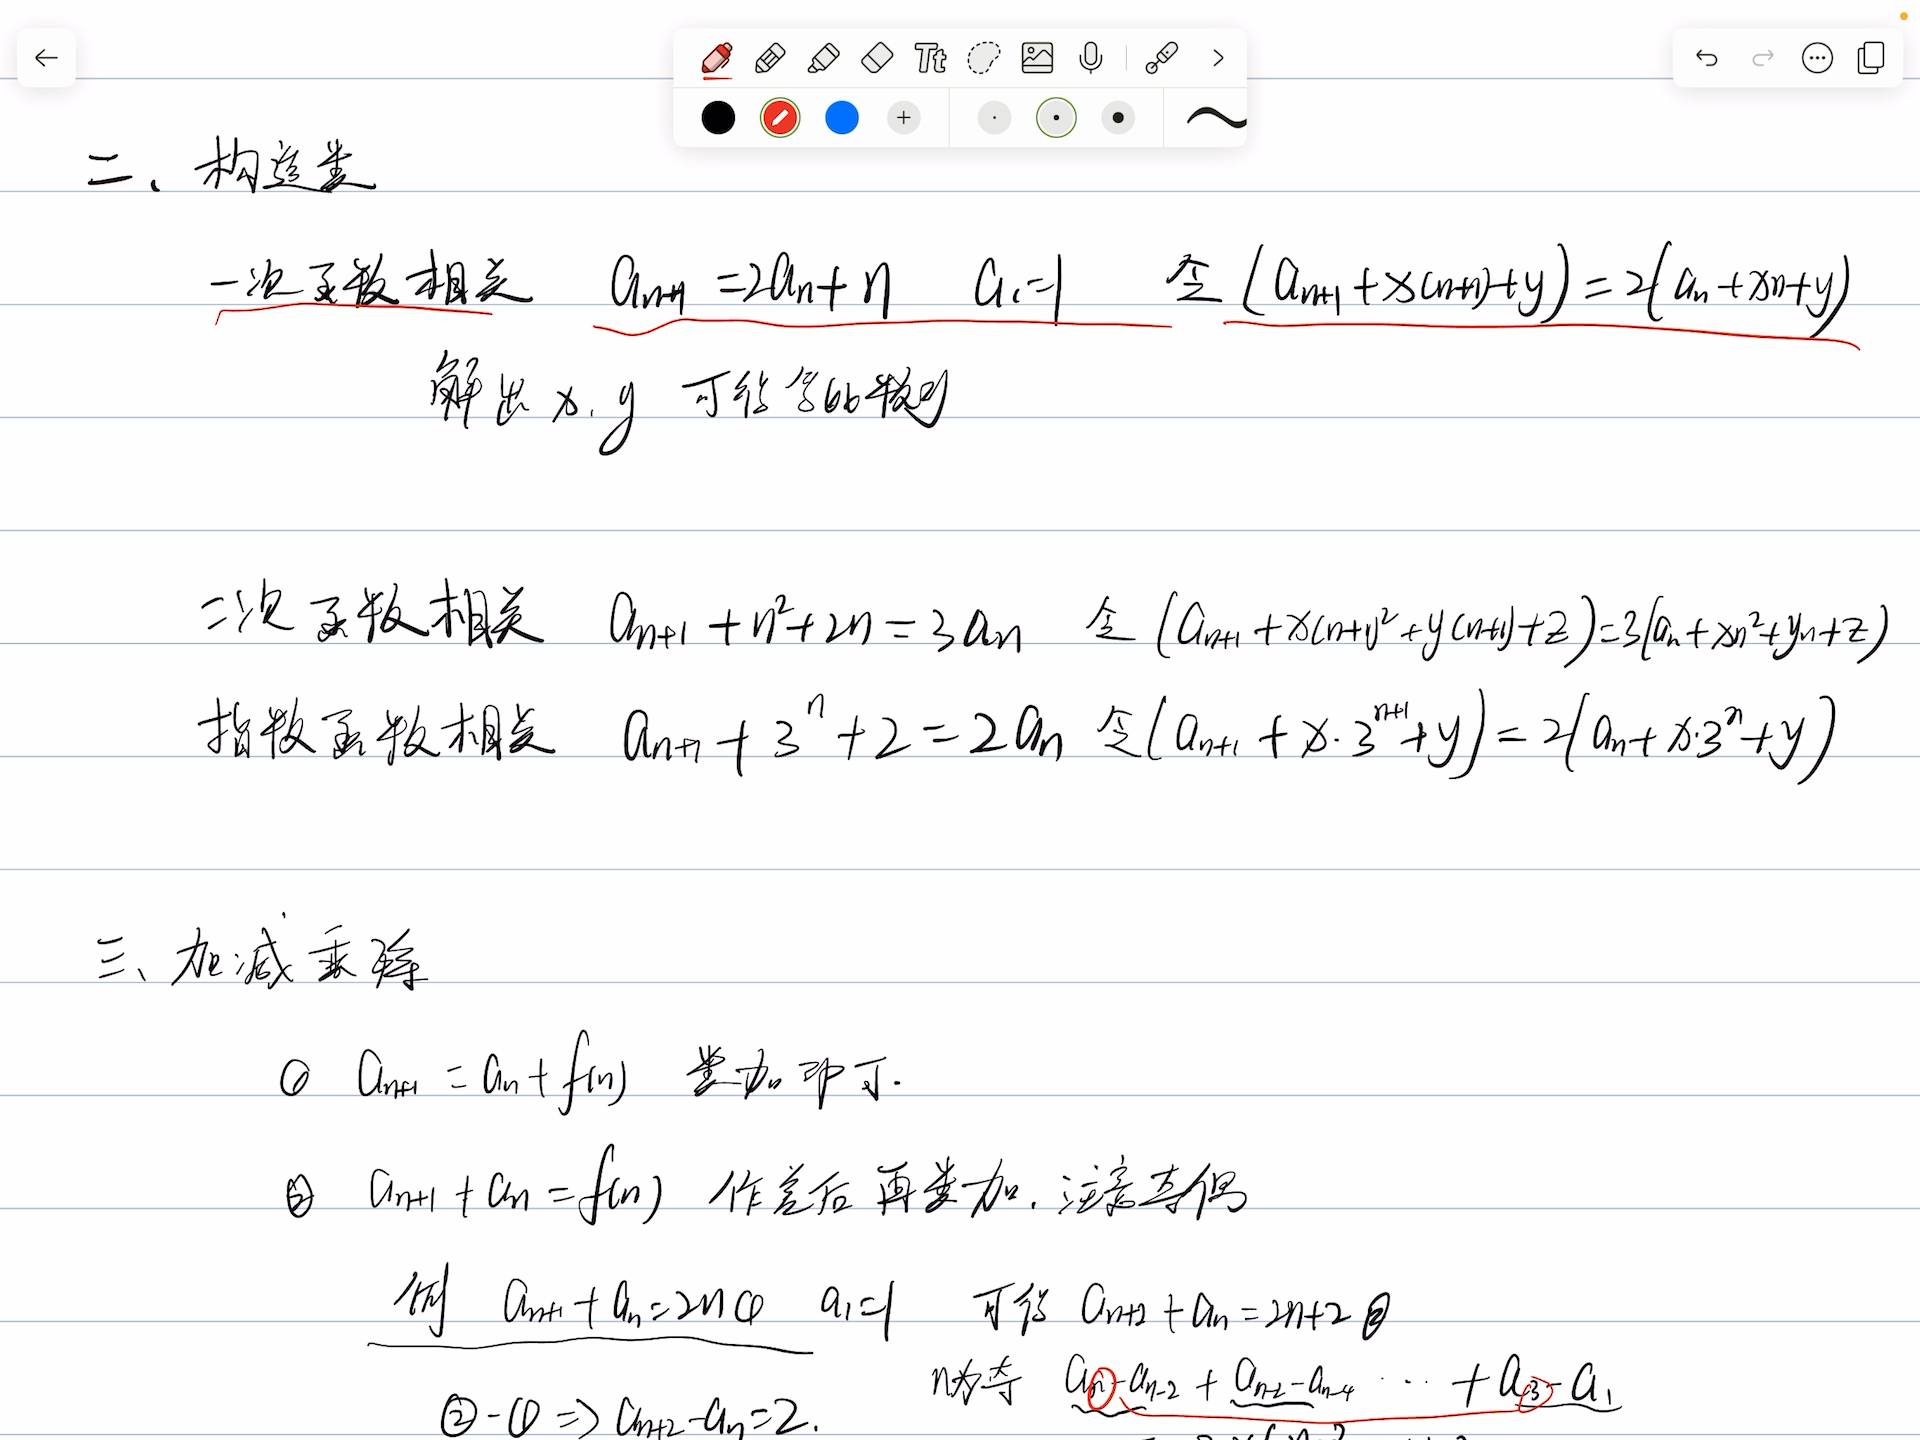 Tt
二、构造类
一次函数相关 aₙ₊₁=2aₙ+n a₁=1 令(aₙ₊₁+x(n+1)+y)=2(aₙ+xn+y)
解出x.y 可得等比数列
二次函数相关 aₙ₊₁+n²+2n=3aₙ 令(aₙ₊₁+x(n+1)²+y(n+1)+z)=3(aₙ+xn²+yn+z)
指数函数相关 aₙ₊₁+3ⁿ+2=2aₙ 令(aₙ₊₁+x·3ⁿ⁺¹+y)=2(aₙ+x·3ⁿ+y)
三、加减乘除
① aₙ₊₁=aₙ+f(n) 累加即可.
② aₙ₊₁+aₙ=f(n) 作差后再累加.注意奇偶
例 aₙ₊₁+aₙ=2n① a₁=1 可得 aₙ₊₂+aₙ=2n+2②
n为奇 aₙ-aₙ₋₂+aₙ₋₂-aₙ₋₄…+a₃-a₁
②-①=>aₙ₊₂-aₙ=2.